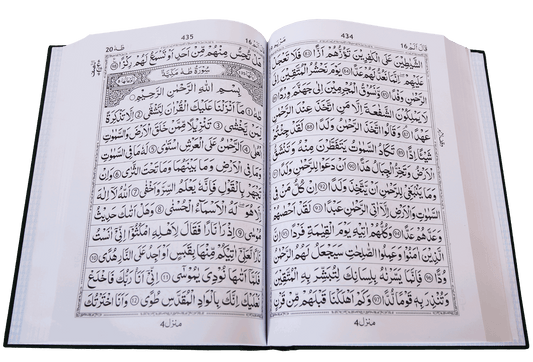 قَالَ اَلَمْ 16 434
الشَّيٰطِيْنَ عَلَى الْكٰفِرِيْنَ تَؤُزُّهُمْ اَزًّا ﴿٨٣﴾ فَلَا تَعْجَلْ
عَلَيْهِمْ ؕ اِنَّمَا نَعُدُّ لَهُمْ عَدًّا ﴿٨٤﴾ يَوْمَ نَحْشُرُ الْمُتَّقِيْنَ اِلَى
الرَّحْمٰنِ وَفْدًا ﴿٨٥﴾ وَّنَسُوْقُ الْمُجْرِمِيْنَ اِلٰى جَهَنَّمَ وِرْدًا ﴿٨٦﴾
لَا يَمْلِكُوْنَ الشَّفَاعَةَ اِلَّا مَنِ اتَّخَذَ عِنْدَ الرَّحْمٰنِ
عَهْدًا ﴿٨٧﴾ وَقَالُوا اتَّخَذَ الرَّحْمٰنُ وَلَدًا ﴿٨٨﴾ لَقَدْ جِئْتُمْ
شَيْـًٔا اِدًّا ﴿٨٩﴾ تَكَادُ السَّمٰوٰتُ يَتَفَطَّرْنَ مِنْهُ وَتَنْشَقُّ
الْاَرْضُ وَتَخِرُّ الْجِبَالُ هَدًّا ﴿٩٠﴾ اَنْ دَعَوْا لِلرَّحْمٰنِ وَلَدًا ﴿٩١﴾
وَمَا يَنْۢبَغِيْ لِلرَّحْمٰنِ اَنْ يَّتَّخِذَ وَلَدًا ﴿٩٢﴾ اِنْ كُلُّ مَنْ فِي
السَّمٰوٰتِ وَالْاَرْضِ اِلَّاۤ اٰتِي الرَّحْمٰنِ عَبْدًا ﴿٩٣﴾ لَقَدْ اَحْصٰىهُمْ
وَعَدَّهُمْ عَدًّا ﴿٩٤﴾ وَكُلُّهُمْ اٰتِيْهِ يَوْمَ الْقِيٰمَةِ فَرْدًا ﴿٩٥﴾ اِنَّ
الَّذِيْنَ اٰمَنُوْا وَعَمِلُوا الصّٰلِحٰتِ سَيَجْعَلُ لَهُمُ الرَّحْمٰنُ
وُدًّا ﴿٩٦﴾ فَاِنَّمَا يَسَّرْنٰهُ بِلِسَانِكَ لِتُبَشِّرَ بِهِ الْمُتَّقِيْنَ
وَتُنْذِرَ بِهٖ قَوْمًا لُّدًّا ﴿٩٧﴾ وَكَمْ اَهْلَكْنَا قَبْلَهُمْ مِّنْ قَرْنٍ
منزل ۴
16 435 طٰهٰ 20
هَلْ تُحِسُّ مِنْهُمْ مِّنْ اَحَدٍ اَوْ تَسْمَعُ لَهُمْ رِكْزًا ﴿٩٨﴾
سُوْرَةُ طٰهٰ مَكِّيَّةٌ
بِسْمِ اللّٰهِ الرَّحْمٰنِ الرَّحِيْمِ
طٰهٰ ﴿١﴾ مَاۤ اَنْزَلْنَا عَلَيْكَ الْقُرْاٰنَ لِتَشْقٰى ﴿٢﴾ اِلَّا تَذْكِرَةً
لِّمَنْ يَّخْشٰى ﴿٣﴾ تَنْزِيْلًا مِّمَّنْ خَلَقَ الْاَرْضَ وَالسَّمٰوٰتِ
الْعُلٰى ﴿٤﴾ اَلرَّحْمٰنُ عَلَى الْعَرْشِ اسْتَوٰى ﴿٥﴾ لَهٗ مَا فِي السَّمٰوٰتِ
وَمَا فِي الْاَرْضِ وَمَا بَيْنَهُمَا وَمَا تَحْتَ الثَّرٰى ﴿٦﴾ وَاِنْ
تَجْهَرْ بِالْقَوْلِ فَاِنَّهٗ يَعْلَمُ السِّرَّ وَاَخْفٰى ﴿٧﴾ اَللّٰهُ لَاۤ اِلٰهَ
اِلَّا هُوَ ؕ لَهُ الْاَسْمَآءُ الْحُسْنٰى ﴿٨﴾ وَهَلْ اَتٰىكَ حَدِيْثُ
مُوْسٰى ﴿٩﴾ اِذْ رَاٰ نَارًا فَقَالَ لِاَهْلِهِ امْكُثُوْۤا اِنِّيْۤ اٰنَسْتُ
نَارًا لَّعَلِّيْۤ اٰتِيْكُمْ مِّنْهَا بِقَبَسٍ اَوْ اَجِدُ عَلَى النَّارِ هُدًى ﴿١٠﴾
فَلَمَّاۤ اَتٰىهَا نُوْدِيَ يٰمُوْسٰى ﴿١١﴾ اِنِّيْۤ اَنَا رَبُّكَ فَاخْلَعْ
نَعْلَيْكَ ۚ اِنَّكَ بِالْوَادِ الْمُقَدَّسِ طُوًى ﴿١٢﴾ وَاَنَا اخْتَرْتُكَ
منزل ۴